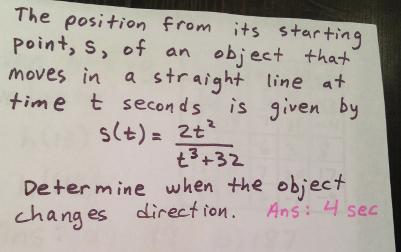 The position from its starting
point, s, of an object that
moves in a straight line at
time t seconds is given by
s(t) = 2t²
t³+32
Determine when the object
changes direction. Ans: 4 sec